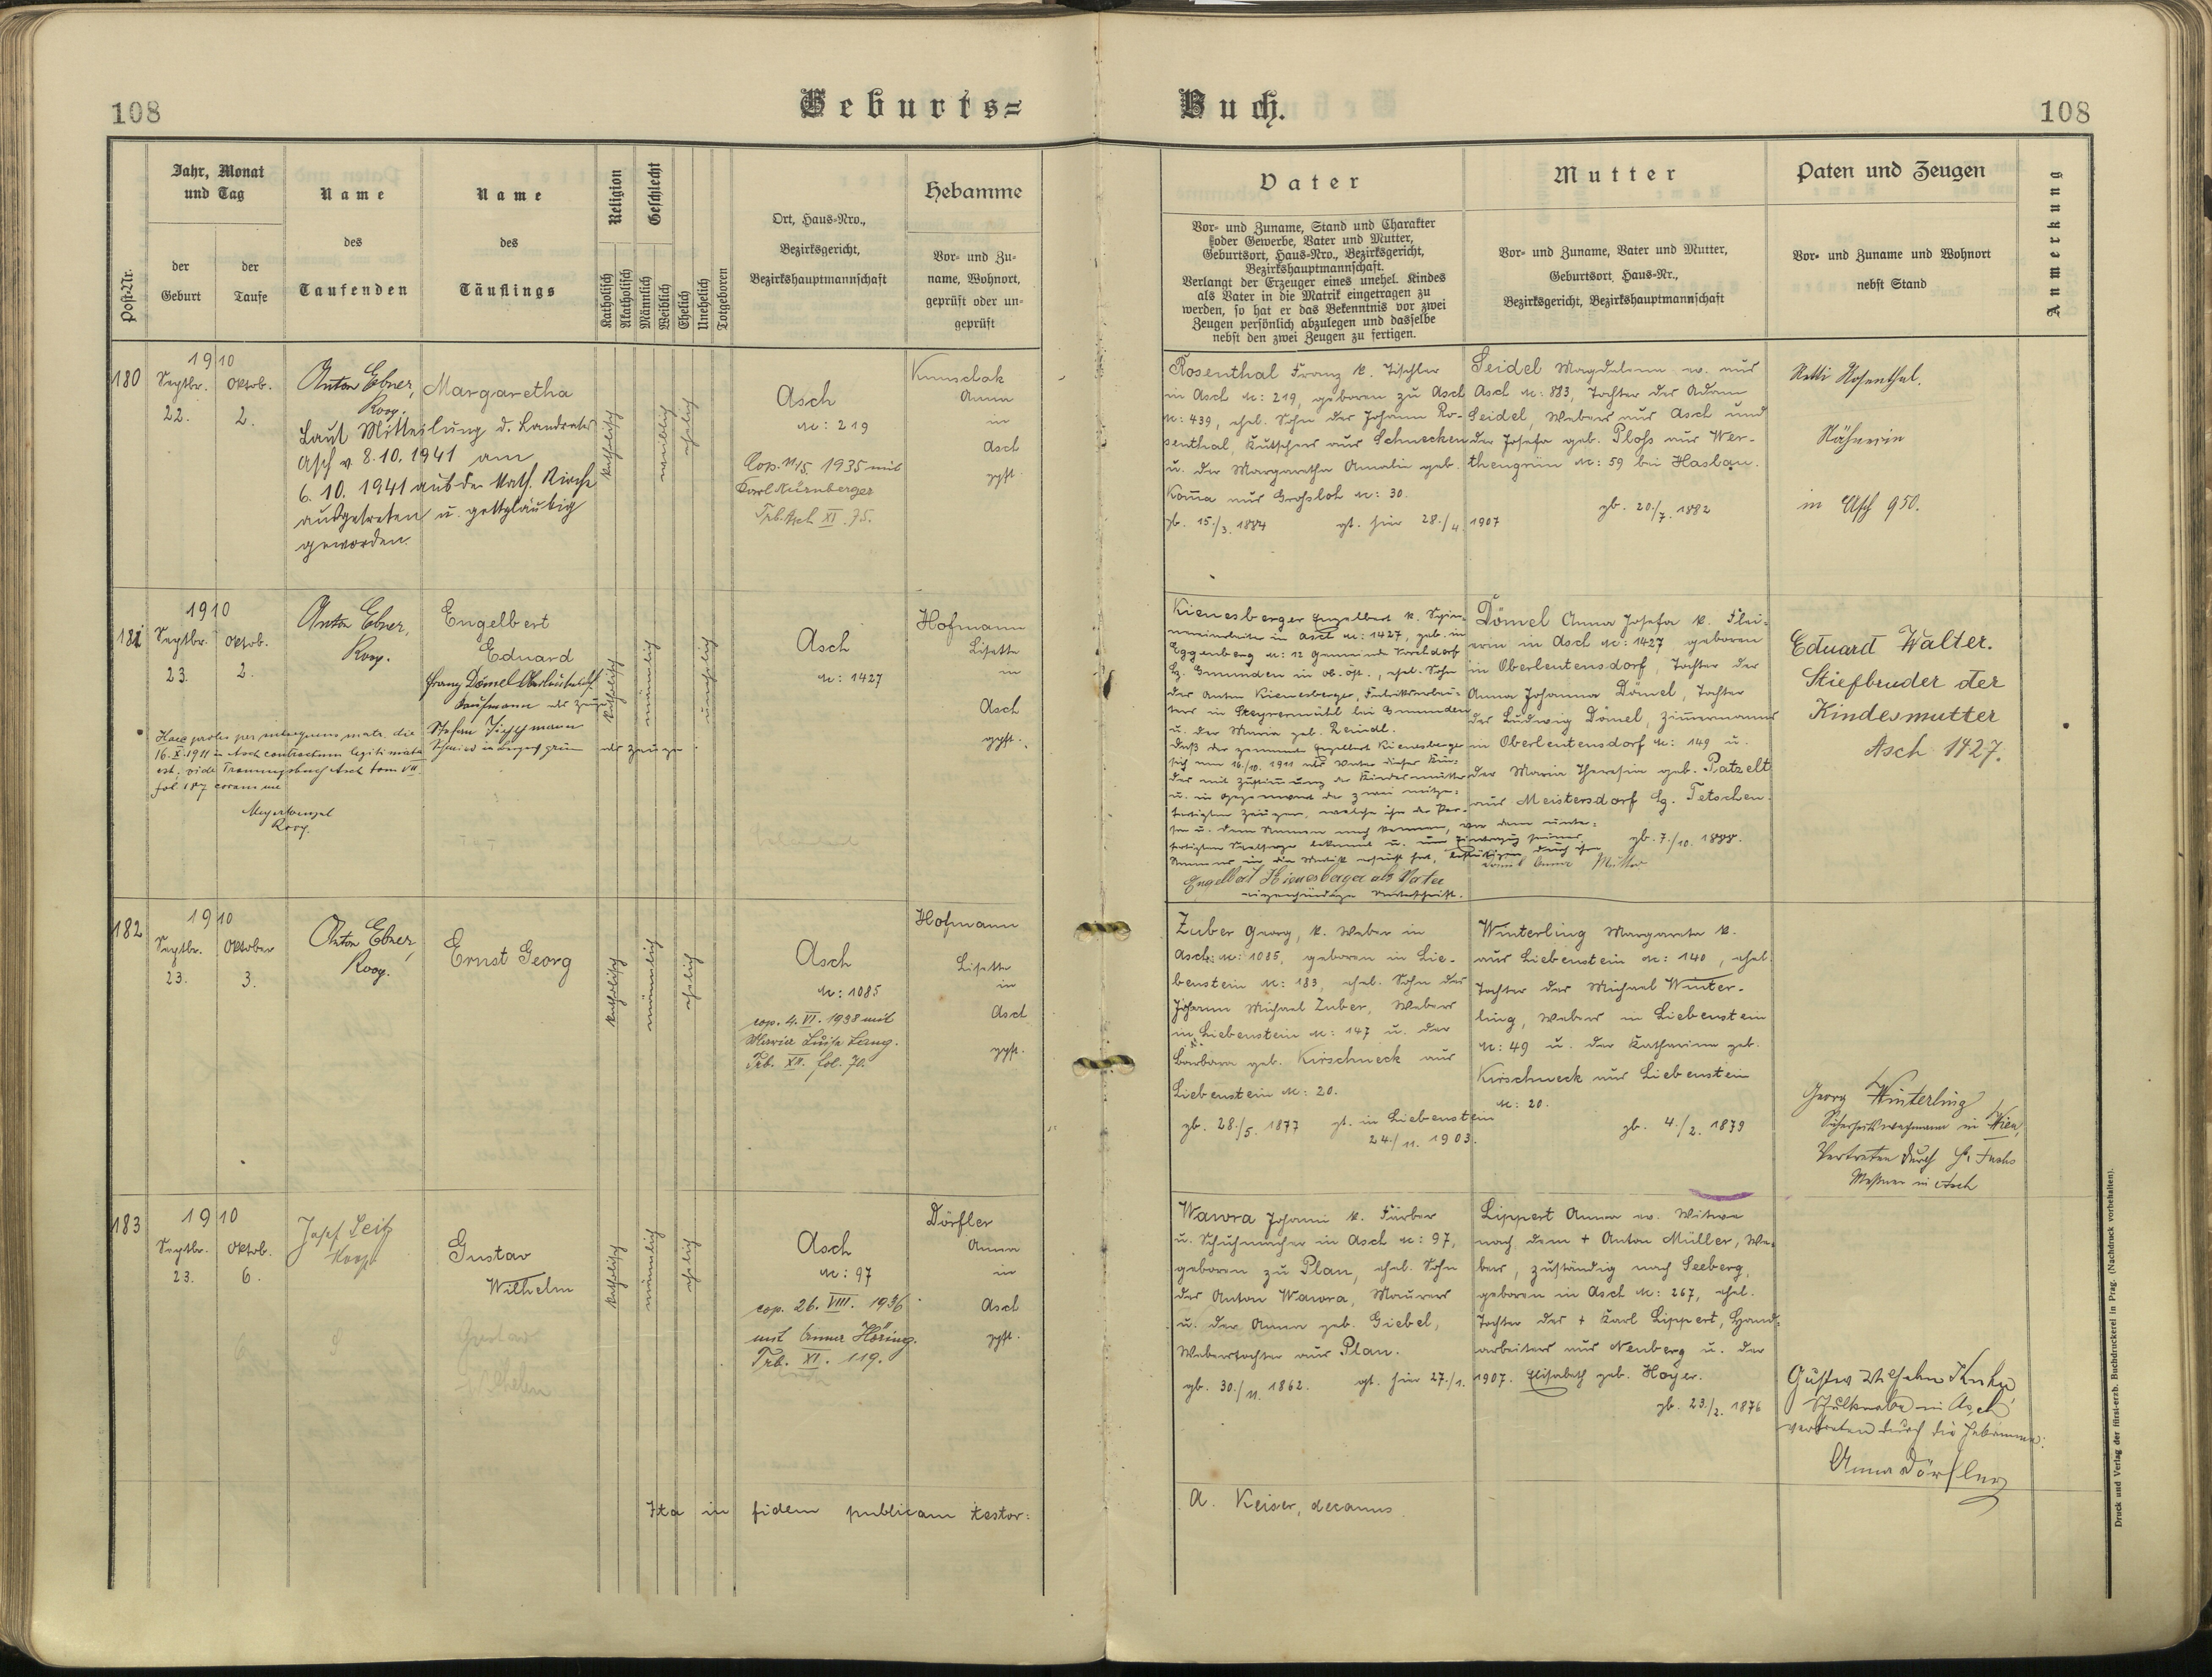 108
Geburts=
Buch.
108
Post-Nr.
Jahr, Monat
und Tag
der
Geburt
der
Taufe
Name
des
Taufenden
Name
des
Täuflings
Religion
Katholisch
Akatholisch
Geschlecht
Männlich
Weiblich
Ehelich
Unehelich
Totgeboren
Ort, Haus-Nro.,
Bezirksgericht,
Bezirkshauptmannschaft
Hebamme
Vor- und Zu-
name, Wohnort,
geprüft oder un-
geprüft
Vater
Vor- und Zuname, Stand und Charakter
oder Gewerbe, Vater und Mutter,
Geburtsort, Haus-Nro., Bezirksgericht,
Bezirkshauptmannschaft.
Verlangt der Erzeuger eines unehel. Kindes
als Vater in die Matrik eingetragen zu
werden, so hat er das Bekenntnis vor zwei
Zeugen persönlich abzulegen und dasselbe
nebst den zwei Zeugen zu fertigen.
Mutter
Vor- und Zuname, Vater und Mutter,
Geburtsort, Haus-Nr.,
Bezirksgericht, Bezirkshauptmannschaft
Paten und Zeugen
Vor- und Zuname und Wohnort
nebst Stand
Anmerkung
180
1910
Septbr.
22.
Oktob.
2.
Anton Ebner,
Koop.
Laut Mitteilung d. Landrates
Asch v. 8.10.1941 am
6.10.1941 aus der kath. Kirche
ausgetreten u. gottgläubig
geworden.
Margaretha
katholisch
weiblich
ehelich
Asch
N: 219
Cop. 11/5. 1935 mit
Karl Nürnberger
Trb. Asch XI. 75.
Kunschak
Anna
in
Asch
gpft.
Rosenthal Franz k. Tischler
in Asch N: 219, geboren zu Asch
N: 439, ehel. Sohn des Johann Ro-
senthal, Kutschers aus Schnecken
u. der Margaretha Amalia geb.
Koma aus Grossloh N: 30.
gb. 15./3. 1884 gt. hier 28./4. 1907
Seidel Magdalena ev. aus
Asch N: 883, Tochter des Adam
Seidel, Webers aus Asch und
der Josefa geb. Ploss aus Wer-
thengrün N: 59 bei Haslau.
gb. 20./7. 1882
Netti Rosenthal.
Näherin
in Asch 950.
181
1910
Septbr.
23.
Oktob.
2.
Anton Ebner,
Koop.
Haec proles per subsequens matr. die
16.X.1911 in Asch contractum legitimata
est; vide Trauungsbuch Asch tom VII
fol. 187 coram me
Koop.
Engelbert
Eduard
Franz Dömel
Kaufmann als Zeuge
Stefan
Schmied in als Zeuge.
katholisch
männlich
unehelich
Asch
N: 1427
Hofmann
Lisette
in
Asch
gpft.
Kienesberger Engelbert k. Spin-
nereiarbeiter in Asch N: 1427, geb. in
Eggenberg N: 12 Gemeinde Vorchdorf
Bz. Gmunden in ob. öst., ehel. Sohn
des Anton Kienesberger, Fabriksarbei-
ters in Steyrermühl bei Gmunden
u. der Maria geb. Reindl.
Daß der genannte Engelbert Kienesberger
sich am 16/10. 1911 als Vater dieses Kin-
des mit Zustimmung der Kindesmutter
u. in Gegenwart der zwei mitge-
fertigten Zeugen, welche ihn der Per-
son u. dem Namen nach kennen, vor dem unter-
fertigten Seelsorger bekannt u. um Eintragung seines
Namens in die Matrik ersucht hat, bestätigen durch ihre
Engelbert Kienesberger als Vater
eigenhändige Unterschrift.
Dömel Anna Josefa k. Flei-
erin in Asch N: 1427 geboren
in Oberleutensdorf, Tochter der
Anna Johanna Dömel, Tochter
des Ludwig Dömel, Zimmermanns
in Oberleutensdorf N: 149 u.
der Maria Theresia geb. Patzelt
aus Meistersdorf Bz. Tetschen.
gb. 7./10. 1888.
Dömel Anna Mutter
Eduard Walter.
Stiefbruder der
Kindesmutter
Asch 1427.
182
1910
Septbr.
23.
Oktober
3.
Anton Ebner,
Koop.
Ernst Georg
katholisch
männlich
ehelich
Asch
N: 1085
cop. 4. VI. 1938 mit
Maria Luise Lang.
Trb. XII. fol. 70.
Hofmann
Lisette
in
Asch
gpft.
Zuber Georg, k. Weber in
Asch N: 1085, geboren in Lie-
benstein N: 183, ehel. Sohn des
Johann Michael Zuber, Webers
in Liebenstein N: 147 u. der
Barbara geb. Kirschneck aus
Liebenstein N: 20.
gb. 28./5. 1877 gt. in Liebenstein
24./11. 1903.
Winterling Margareta k.
aus Liebenstein N: 140, ehel.
Tochter des Michael Winter-
ling, Webers in Liebenstein
N: 49 u. der Katharina geb.
Kirschneck aus Liebenstein
N: 20.
gb. 4./2. 1879
Georg Winterling
Sicherheitswachmann in Wien,
Vertreten durch H. Fuchs
Messner in Asch
183
1910
Septbr.
23.
Oktob.
6.
Josef Seitz
Koop.
Gustav
Wilhelm
katholisch
männlich
ehelich
Asch
N: 97
cop. 26. VIII. 1936
mit Anna Höring.
Trb. XI. 119.
Dörfler
Anna
in
Asch
gpft.
Wawra Johann k. Färber
u. Schuhmacher in Asch N: 97,
geboren zu Plan, ehel. Sohn
des Anton Wawra, Maurers
u. der Anna geb. Giebel,
Weberstochter aus Plan.
gb. 30./11. 1862. gt. hier 27./1. 1907.
Lippert Anna ev. Witwe
nach dem + Anton Müller, We-
bers, zuständig nach Seeberg,
geboren in Asch N: 267, ehel.
Tochter des + Karl Lippert, Hand-
arbeiters aus Neuberg u. der
Elisabeth geb. Hoyer.
gb. 23./2. 1876
Gustav Wilhelm
Schulknabe in Asch
vertreten durch die Hebamme:
Anna Dörfler
Ita in fidem publicam testor:
A. Keiser, decanus
Druck und Verlag der fürst-erzb. Buchdruckerei in Prag. (Nachdruck vorbehalten).